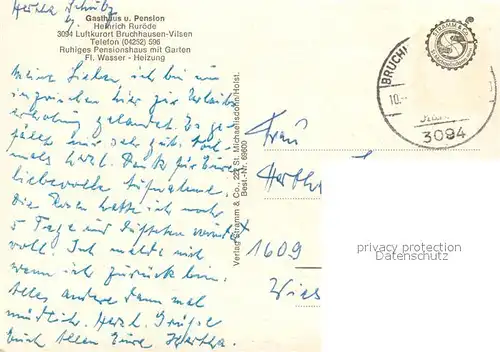 Hertha Schulz
Gasthaus u. Pension
Heinrich Ruröde
3094 Luftkurort Bruchhausen-Vilsen
Telefon (04252) 596
Ruhiges Pensionshaus mit Garten
Fl. Wasser - Heizung
Meine Lieben ich bin nun
inzwischen hier zur Urlaubs
erholung gelandet. Es ge-
fällt mir sehr gut. Noch-
mals herzl. Dank für Eure
liebevolle Aufnahme.
Die Rosen hatte ich noch
5 Tage und dufteten wunder
voll. Ich melde mich
wenn ich zurück bin.
Alles andere dann mal
mündlich. Herzl. Grüße
Euch Allen Eure Hertha.
Verlag Stramm & Co., 222 St. Michaelisdonn/Holst.
Best.-Nr. 69600
STRAMM & CO.
St. Michaelisdonn
BRUCHH
10.
3094
Frau
Herth
1609
Wies
privacy protection
oldthing.de/AKMAX